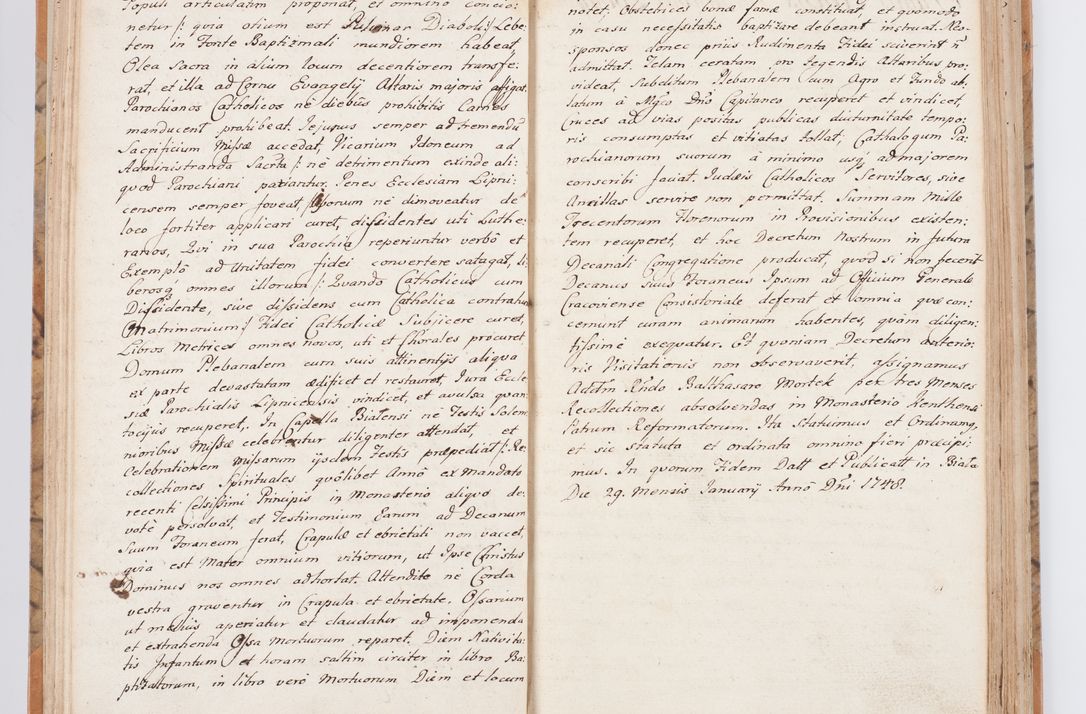 Populi articulatim proponat, et omnino concio:
netur /: quia otium est Pulvinar Diaboli :/ Lebe:
tem in Fonte Baptizmali mundiorem habeat,
Olea Sacra in alium locum decentiorem transfe:
rat, et illa ad Cornu Evangelij Altaris majoris affigat.
Parochianos Catholicos ne diebus prohibitis Carnes
manducent prohibeat. Jejunus semper ad tremendũ
Sacrificium Missæ accedat, Vicarium Idoneum ad
Administranda Sacrta /: ne detrimentum exinde ali:
quod Parochiani patiantur. Penes Ecclesiam Lipni:
censem semper foveat, quonum ne dimoveatur de
loco fortiter applicari curet, dissidentes uti Luthe:
ranos, Qui in sua Parochia reperiuntur verbô et
Exemplô ad Unitatem fidei convertere satagat, li:
berosq omnes illorum /: Quando Catholicus cum
Dissidente, sive dissidens cum Catholica contrahit
Matrimonium :/ Fidei Catholicæ Subjicere curet,
Libros Metrices omnes novos, uti et Chorales procuret
Domum Plebanalem cum suis attinentijs aliqua
ex parte devastatam ædificet et restauret, Jura Eccle
siæ Parochialis Lipnicensis vindicet, et avulsa quan
tocijus recuperet,. In Capella Bialensi ne Festis Solem
nioribus Missæ celebrentur diligenter attendat, et
Celebrationem Missarum ijsdem Festis præpediat /: Re:
collectiones Spirituales quôlibet Annô ex Mandato
recenti Celsissimi Principis in Monasterio aliquo de:
votè persolvat, et Testimonium Earum ad Decanum
Suum Foraneum ferat, Crapulæ et ebrietati non vaccet,
quia est Mater omnium vitiorum, ut Ipse Christus
Dominus nos omnes adhortat. Attendite ne Corda
vestra graventur in Crapula et ebrietate. Ossarium
ut melius aperiatur et claudatur ad imponenda
et extrahenda Ossa Mortuorum reparet. Diem Nativita:
tis Infantum et horam saltim circiter in libro Ba:
ptizatorum, in libro verô Mortuorum Diem et locum
notet, Obstetrices bonæ famæ constituat, et quomodo
in casu necessitatis baptizare debeant instruat. Res-
sponsos donec prius Rudimenta Fidei sciverint ñ
admittat. Telam ceratam pro tegendis Altaribus pro:
videat, Subditum Plebanalem cum Agro et Fundo ab:
latum à Mgco Dño Capitaneo recuperet et vindicet,
Cruces ad vias positas publicas diuturnitate tempo:
ris consumptas et vitiatas tollat, Cathalogum Pa:
rochianorum suorum à minimo usq ad majorem
conscribi faciat. Judæis Catholicos Servitores, sive
Ancillas servire non permittat. Summam Mille
Trecentorum Florenorum in Provisionibus existen:
tem recuperet, et hoc Decretum Nostrum in futura
Decanali Congregatione producat, quod si non fecerit
Decanus Suus Foraneus Ipsum ad Officium Generale
Cracoviense Consistoriale deferat et omnia quæ con:
cernunt curam animarum habentes, quàm diligen:
tissimè exequatur. Et quoniam Decretum anterio:
ris Visitationis non observaverit, assignamus
Adttm Rñdo Balthasaro Mortek per tres Menses
Recollectiones absolvendas in Monasterio Kenthensi
Patrum Reformatorum. Ita Statuimus et Ordinamg,
et sic statuta et ordinata omnino fieri præcipi:
mus. In quorum Fidem Datt et Publicatt in Biała
Die 29. Mensis Januarij Annô Dñi 1748.